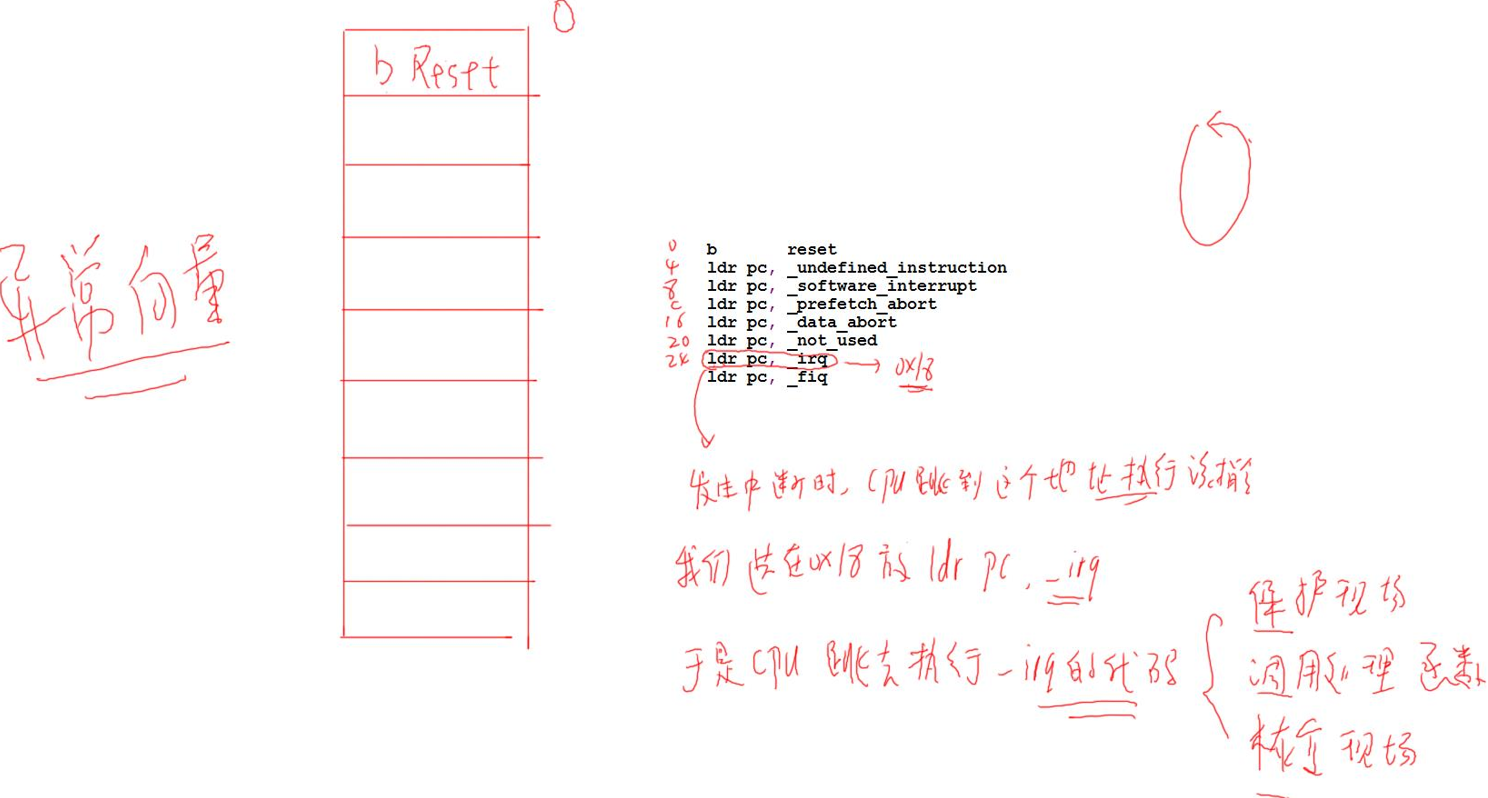 0
b Reset
异常向量
0 b reset
4 ldr pc, _undefined_instruction
8 ldr pc, _software_interrupt
c ldr pc, _prefetch_abort
16 ldr pc, _data_abort
20 ldr pc, _not_used
24 ldr pc, _irq → 0x18
ldr pc, _fiq
发生中断时, CPU跳到这个地址执行该指令
我们在0x18放 ldr pc, _irq
于是CPU跳去执行_irq的代码
保护现场
调用处理函数
恢复现场